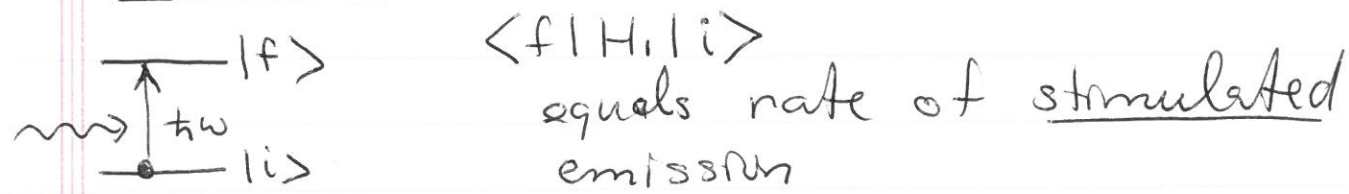 |f>
<f|H₁|i>
equals rate of stimulated
ħω
|i>
emission